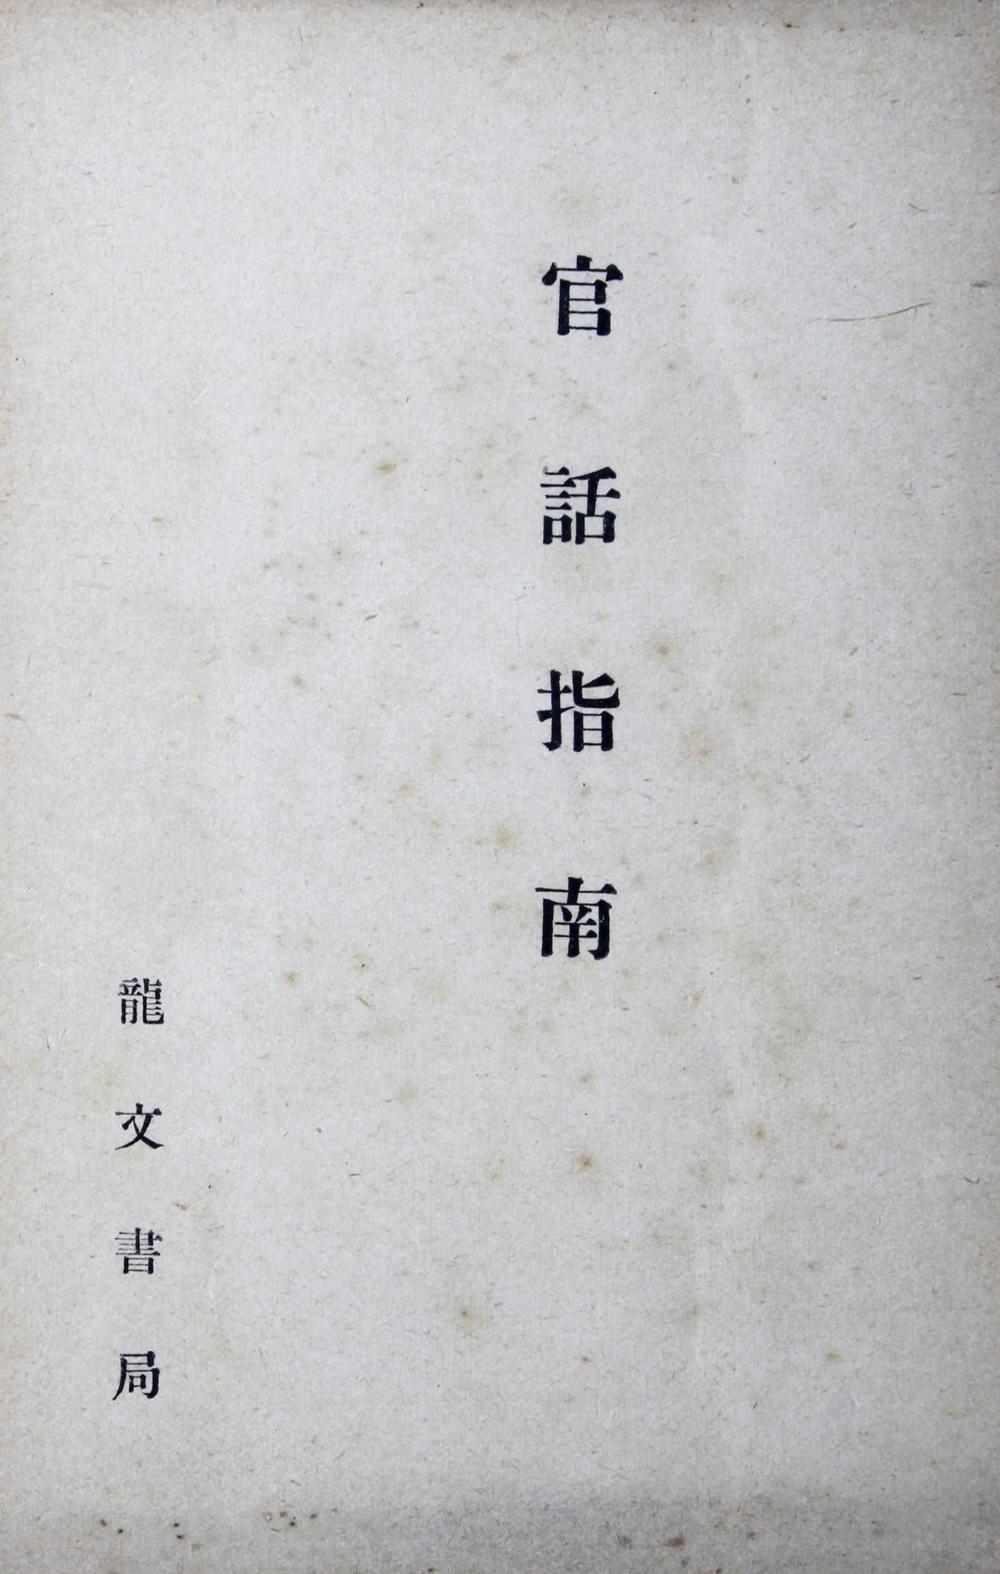 官話指南
龍文書局